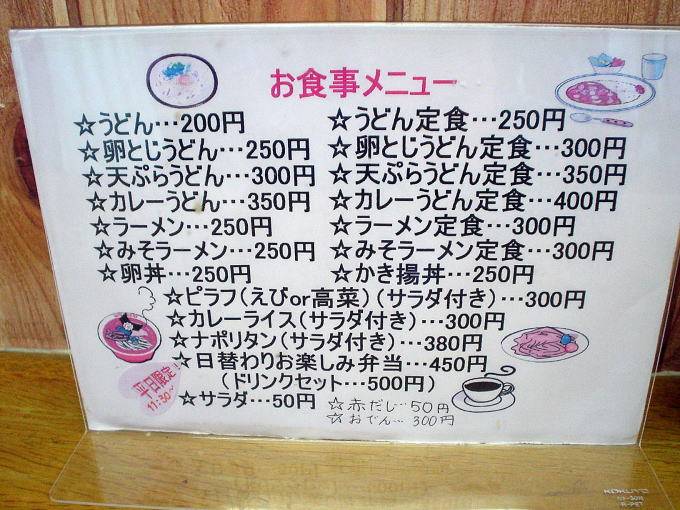 お食事メニュー
☆うどん…200円
☆うどん定食…250円
☆卵とじうどん…250円
☆卵とじうどん定食…300円
☆天ぷらうどん…300円
☆天ぷらうどん定食…350円
☆カレーうどん…350円
☆カレーうどん定食…400円
☆ラーメン…250円
☆ラーメン定食…300円
☆みそラーメン…250円
☆みそラーメン定食…300円
☆卵丼…250円
☆かき揚丼…250円
☆ピラフ(えびor高菜)(サラダ付き)…300円
☆カレーライス(サラダ付き)…300円
☆ナポリタン(サラダ付き)…380円
☆日替わりお楽しみ弁当…450円
(ドリンクセット…500円)
平日限定!
11:30~
☆サラダ…50円
☆赤だし…50円
☆おでん…300円
KOKUYO